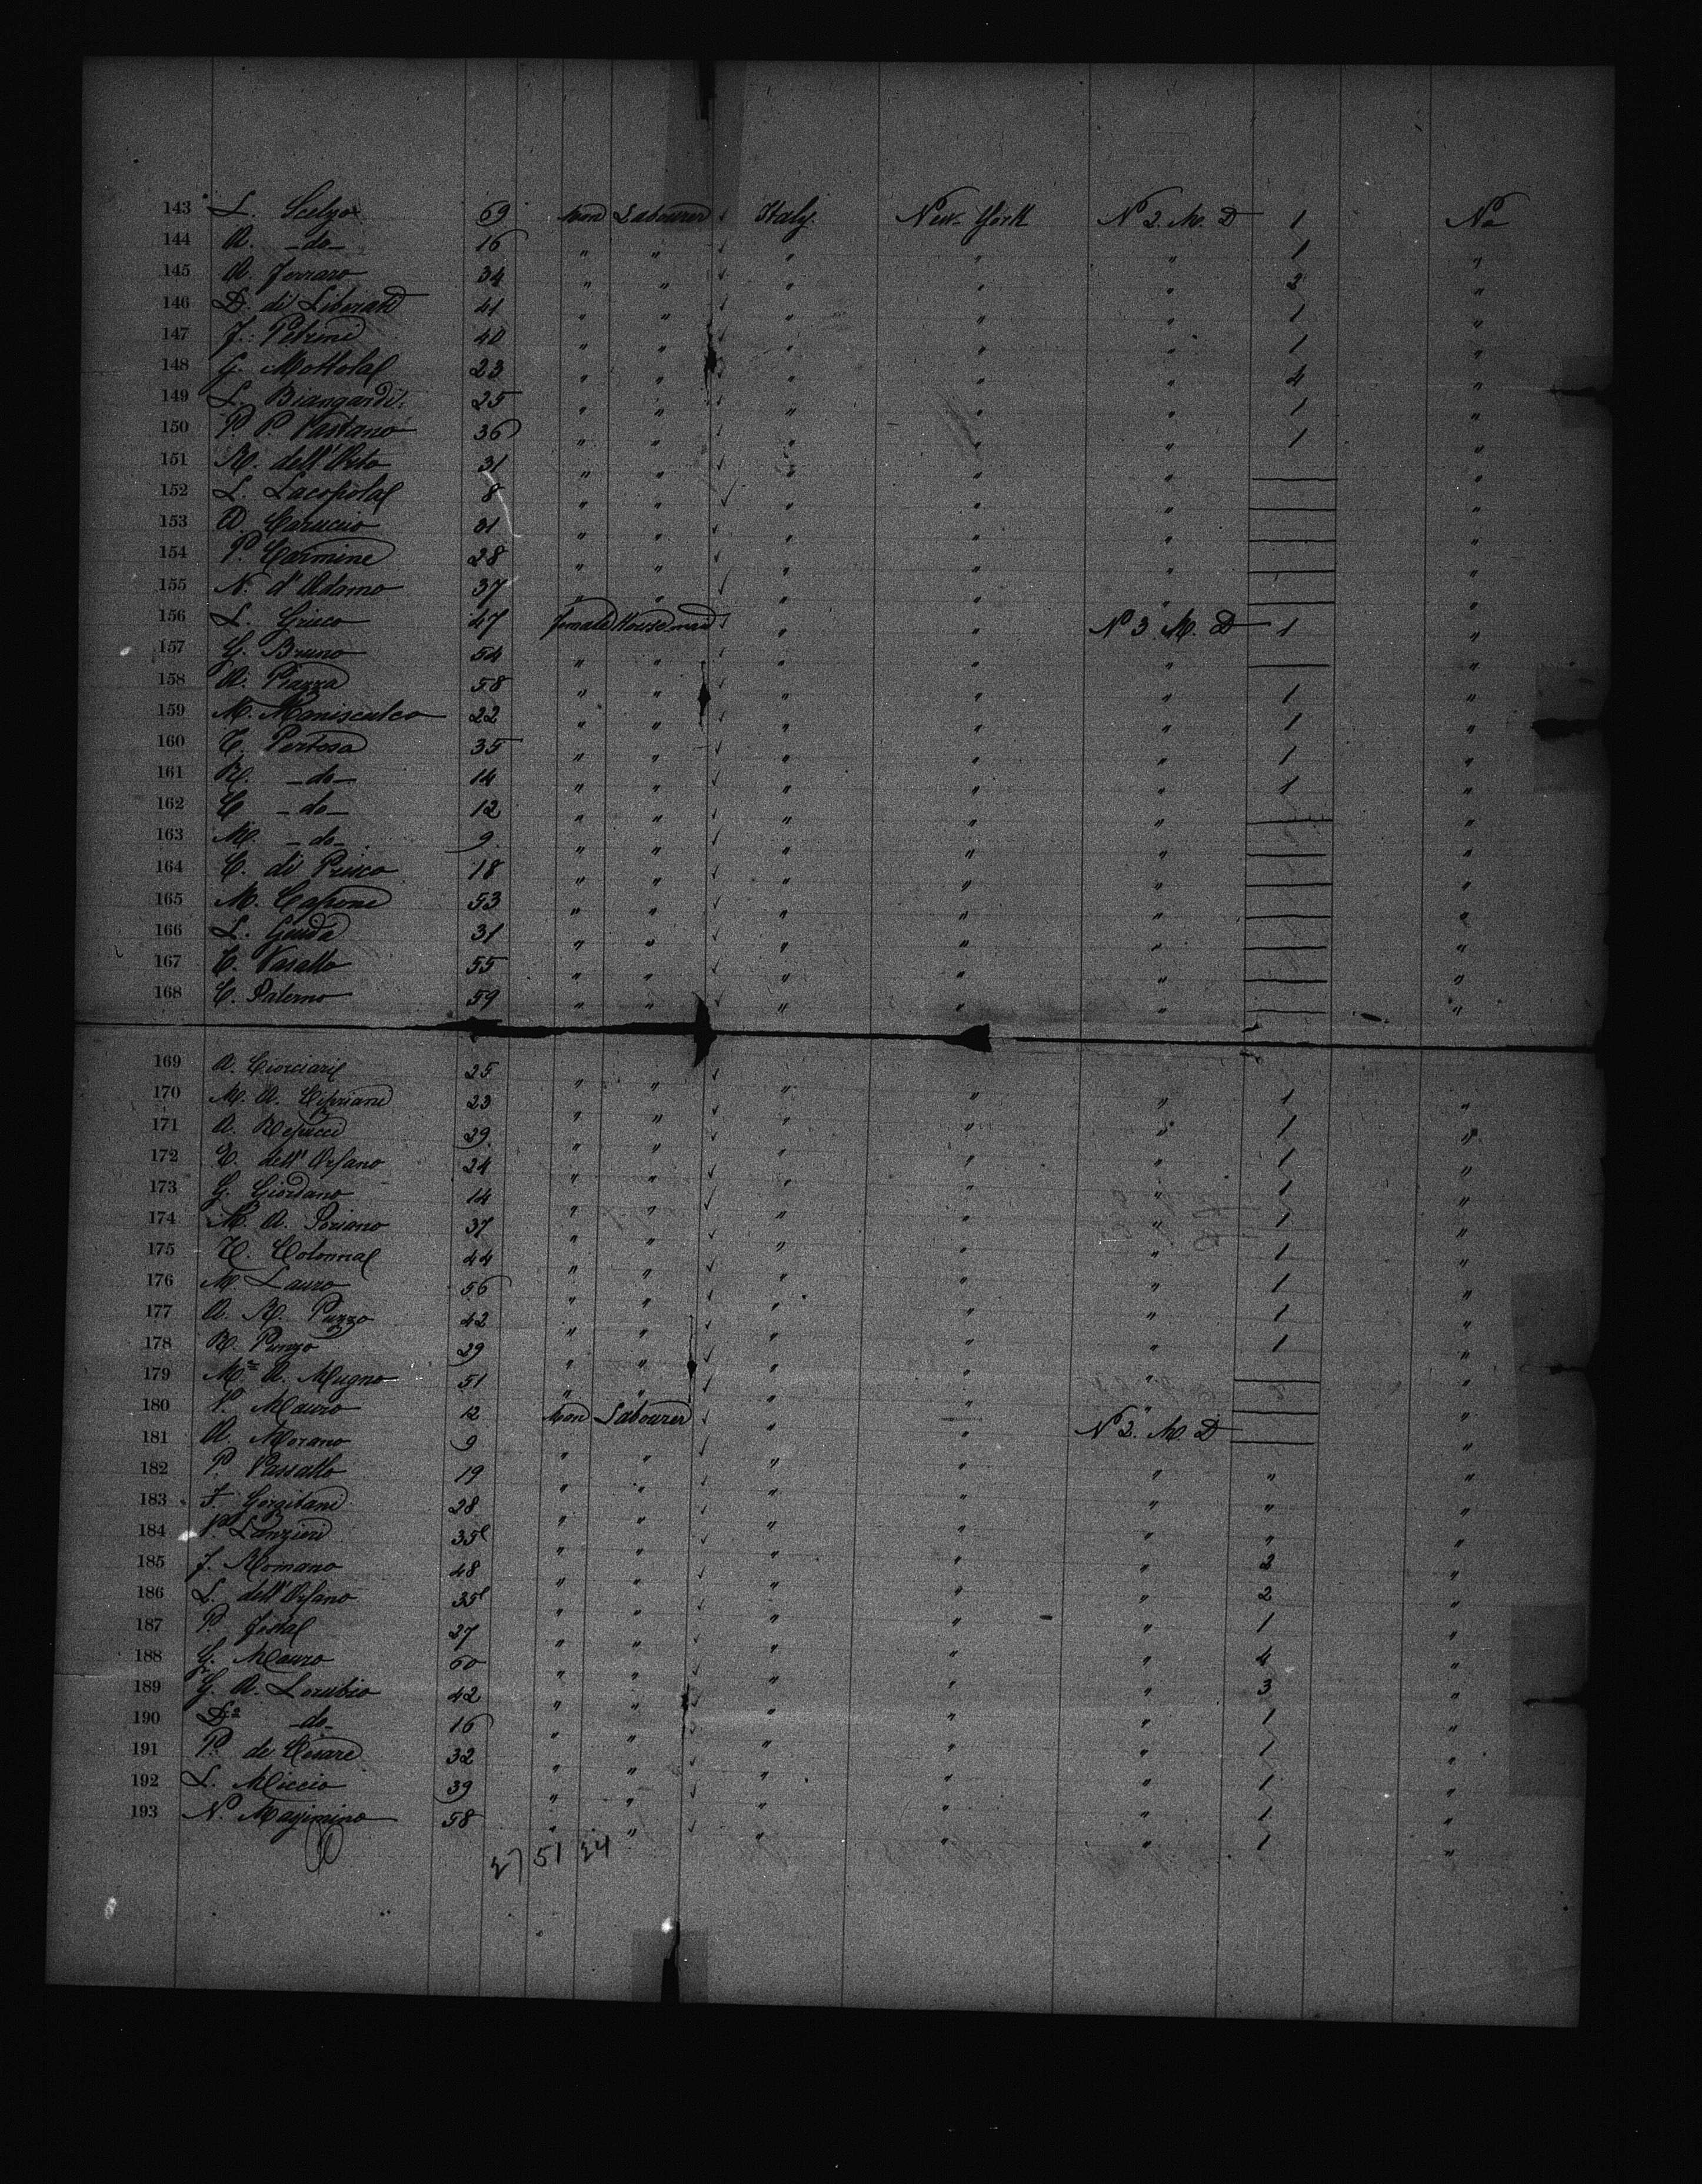 143 L. Scelzo 69 Man Labourer ✓ Italy New-York N 2. M. D 1 No
144 A. -do- 16 " " ✓ " " " 1 "
145 A. Ferraro 34 " " ✓ " " " 2 "
146 D. di Liberato 41 " " ✓ " " " 1 "
147 F. Petrini 40 " " ✓ " " " 1 "
148 G. Mottola 23 " " ✓ " " " 4 "
149 L. Biangardi 25 " " ✓ " " " 1 "
150 P. P. Vastano 36 " " ✓ " " " 1 "
151 R. dell'Orto 31 " " ✓ " " " — "
152 L. Lacopola 8 " " ✓ " " " — "
153 A. Caruccio 31 " " ✓ " " " — "
154 P. Carmine 28 " " ✓ " " " — "
155 N. d'Adamo 37 " " ✓ " " " — "
156 L. Grieco 47 female House maid ✓ " " N 3 M. D 1 "
157 G. Bruno 54 " " ✓ " " " — "
158 A. Piazza 58 " " ✓ " " " 1 "
159 M. Maniscalco 22 " " ✓ " " " 1 "
160 C. Pertosa 35 " " ✓ " " " 1 "
161 R. -do- 14 " " ✓ " " " 1 "
162 C -do- 12 " " ✓ " " " — "
163 M. -do- 9 " " ✓ " " " — "
164 C. di Prisco 18 " " ✓ " " " — "
165 M. Capone 53 " " ✓ " " " — "
166 L. Guida 31 " " ✓ " " " — "
167 C. Vasallo 55 " " ✓ " " " — "
168 C. Palerno 59 " " ✓ " " " — "
169 A. Ciorciari 25 " " ✓ " " "
170 M. A. Cipriani 23 " " ✓ " " " 1 "
171 A. Repucci 29 " " ✓ " " " 1 "
172 C. dell'Orfano 24 " " ✓ " " " 1 "
173 G. Giordano 14 " " ✓ " " " 1 "
174 M. A. Soriano 37 " " ✓ " " " 1 "
175 C. Colonna 44 " " ✓ " " " 1 "
176 M. Lauro 56 " " ✓ " " " 1 "
177 A. R. Puzzo 42 " " ✓ " " " 1 "
178 R. Punzo 29 " " ✓ " " " 1 "
179 Ma. A. Mugno 51 " " ✓ " " " — "
180 V. Mauro 12 Man Labourer ✓ " " " — "
181 A. Morano 9 " " ✓ " " N 2. M. D — "
182 P. Vassallo 19 " " ✓ " " " " "
183 F. Gorgitani 28 " " ✓ " " " " "
184 V. Lanzieri 35 " " ✓ " " " " "
185 F. Romano 48 " " ✓ " " " 2 "
186 L. dell'Orfano 35 " " ✓ " " " 2 "
187 P. 27 " " ✓ " " " 1 "
188 G. Mauro 60 " " ✓ " " " 4 "
189 G. A. Lorubio 42 " " ✓ " " " 3 "
190 Do -do- 16 " " ✓ " " " 1 "
191 P. de Cesare 32 " " ✓ " " " 1 "
192 L. Miccio 39 " " ✓ " " " 1 "
193 N. Mayimino 58 " " ✓ " " " 1 "
27 51 24